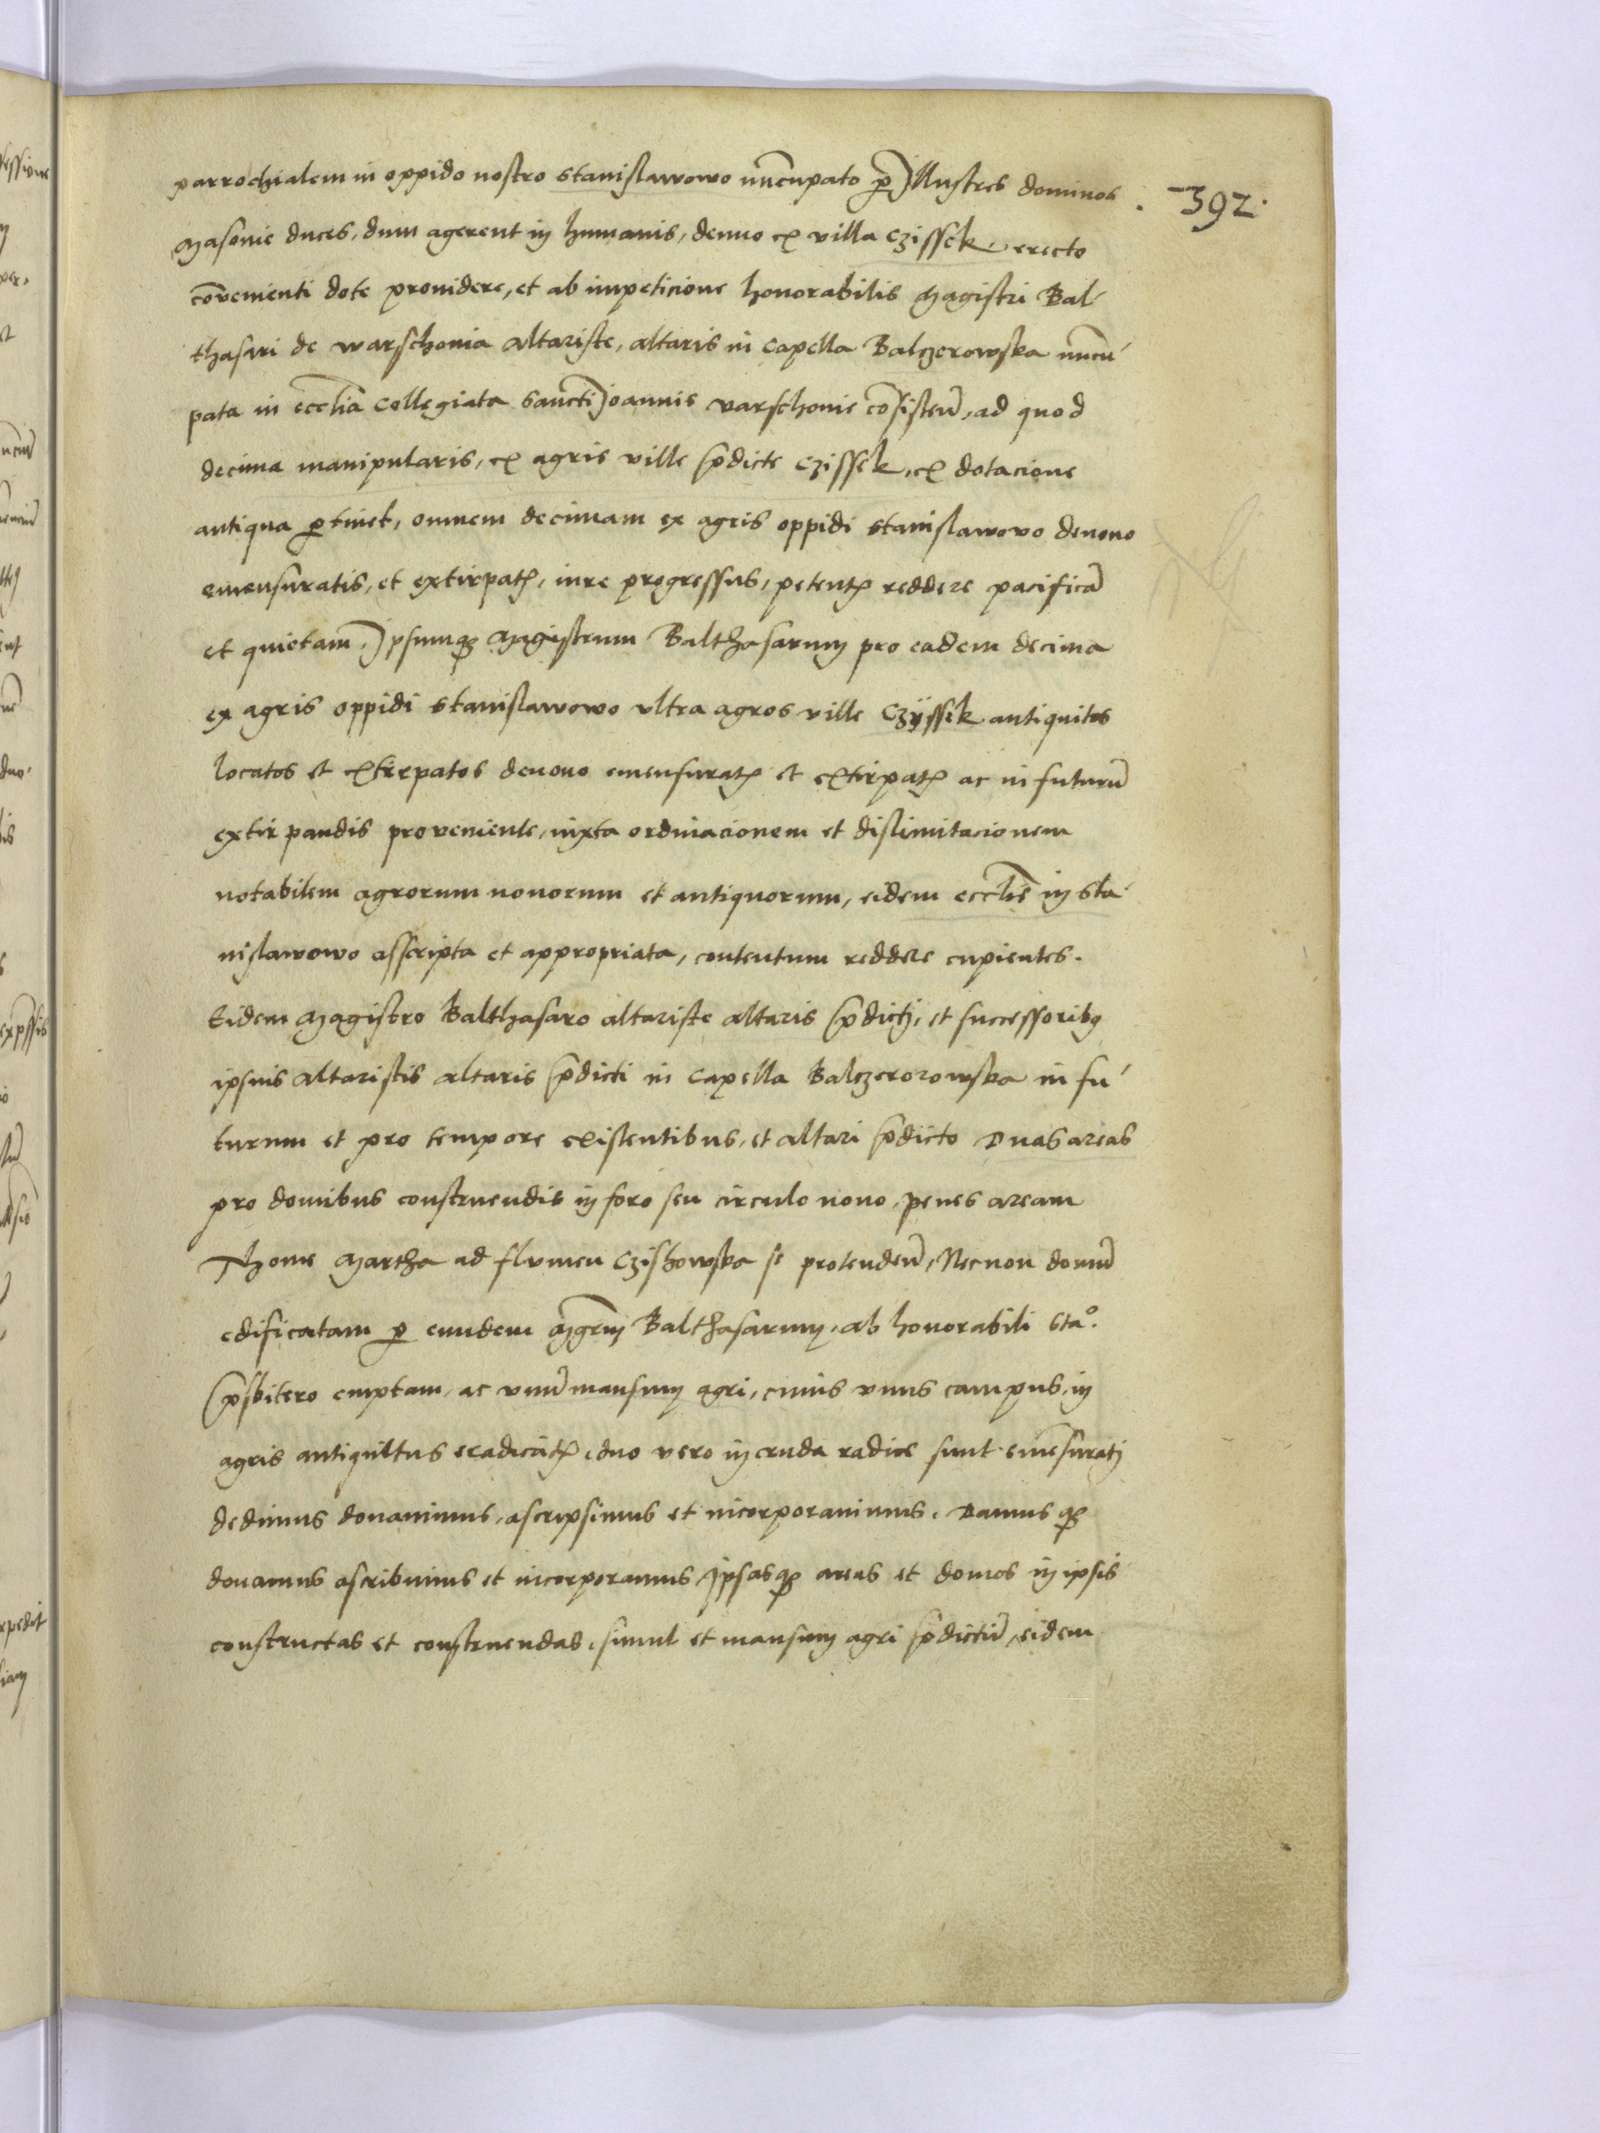 parrochialem in oppido nostro stanislawowo nūcupato ꝑ Illustres dominos
. 392.
Masouie duces, dum agerent in humanis, denuo ex villa Czissek, erecto
cōvenienti dote prouidere, et ab impeticione honorabilis Magistri Bal-
thasari de warschouia altariste, altaris in Capella Balczerowska nūcu-
pata in ecclīa Collegiata Sancti Joannis varschouie cōsisteñ, ad quod
decima manipularis, ex agris ville p̄dicte Czissek, ex dotacione
antiqua ꝑtinet, omnem decimam ex agris oppidi stanislawowo denouo
emensuratis, et extirpatꝭ, iure progressus, petentꝭ reddere pacificā
et quietam. Ipsumqꝫ Magistrum Balthasarum pro eadem decima
ex agris oppidi stanislawowo vltra agros ville Czÿssek antiquitos
locatos et extirpatos denouo emensuratꝭ et extirpatꝭ ac in futurū
extirpandis proveniente, iuxta ordinacionem et dislimitacionem
notabilem agrorum nouorum et antiquorum, eidem ecclīe in sta-
nislawowo asscripta et appropriata, contentum reddere cupientes.
Eidem Magistro Balthasaro altariste altaris p̄dicti, et successoribꝯ
ipsuis altaristis altaris p̄dicti in Capella Balczerorowska in fu-
turum et pro tempore existentibus, et altari p̄dicto Duas areas
pro domibus construendis in foro seu circulo nouo, penes aream
Thome Martha ad flumen Czishowska se protendeñ, Necnon domū
edificatam ꝑ eundem Mgr̄m Balthasarum, ab honorabili sta°.
p̄sbitero emptam, ac vnū mansum agri, cuius vnus campus, in
agris antiquitus eradicatꝭ, duo vero in cruda radice sunt emēsurati
dedimus donauimus, ascripsimus et incorporauimus. Damusqꝫ
donamus ascribimus et incorporamus Ipsasqꝫ areas et domos in ipsis
constructas et construendas, simul et mansum agri p̄dictū, eidem